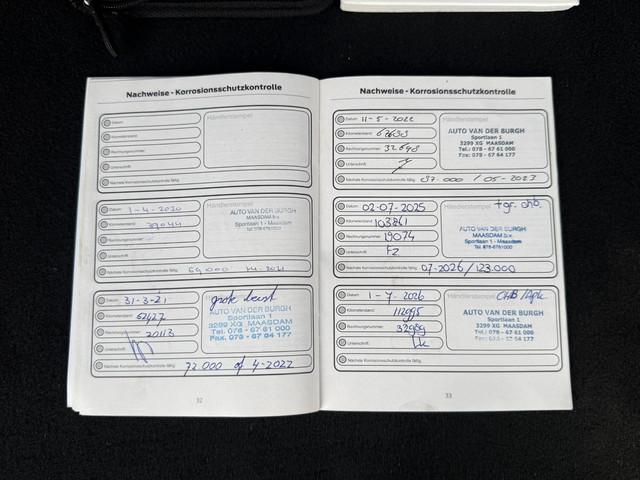 Nachweise - Korrosionsschutzkontrolle
Datum
Kilometerstand
Rechnungsnummer
Unterschrift
Nächste Korrosionsschutzkontrolle fällig
Händlerstempel
Datum 1-4-2020
Kilometerstand 39044
Rechnungsnummer
Unterschrift
Nächste Korrosionsschutzkontrolle fällig 69.000
Händlerstempel
AUTO VAN DER BURGH
MAASDAM b.v.
Sportlaan 1 - Maasdam
Tel. 078-6761000
Datum 31-3-21
Kilometerstand 62427
Rechnungsnummer 20113
Unterschrift
Nächste Korrosionsschutzkontrolle fällig 92.000 of 4-2022
grote beurt
AUTO VAN DER BURGH
Sportlaan 1
3299 XG MAASDAM
Tel. 078 - 67 61 000
Fax. 078 - 67 64 177
32
Nachweise - Korrosionsschutzkontrolle
Datum 11-5-2022
Kilometerstand
Rechnungsnummer
Unterschrift
Nächste Korrosionsschutzkontrolle fällig 97.000 / 05-2023
Händlerstempel
AUTO VAN DER BURGH
Sportlaan 1
3299 XG MAASDAM
Tel.: 078 - 67 61 000
Fax: 078 - 67 64 177
Datum 02-07-2025
Kilometerstand 103861
Rechnungsnummer 19074
Unterschrift Fz
Nächste Korrosionsschutzkontrolle fällig 07-2026 / 123.000
Händlerstempel
+ gr. ohb.
AUTO VAN DER BURGH
MAASDAM b.v.
Sportlaan 1 - Maasdam
Tel. 078-6761000
Datum 1-7-2026
Kilometerstand 112995
Rechnungsnummer
Unterschrift
Nächste Korrosionsschutzkontrolle fällig
Händlerstempel
AUTO VAN DER BURGH
Sportlaan 1
3299 XG MAASDAM
Tel.: 078 - 67 61 000
Fax: 078 - 67 64 177
33